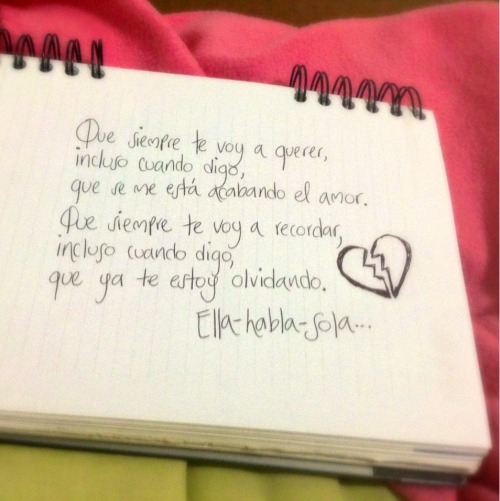 Que siempre te voy a querer,
incluso cuando digo,
que se me está acabando el amor.
Que siempre te voy a recordar,
incluso cuando digo,
que ya te estoy olvidando.
Ella-habla-sola...